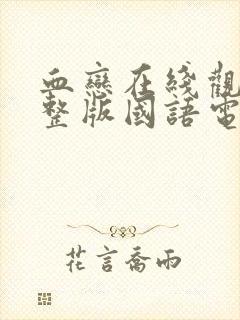 血戀在綫觀
整版國語電
花言喬雨